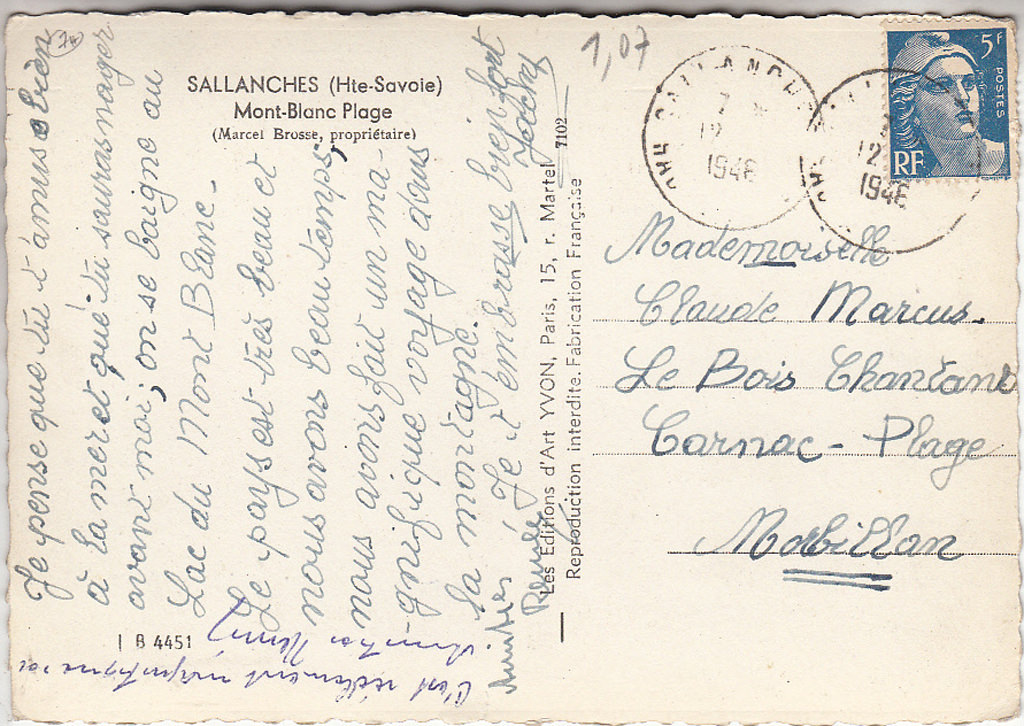 SALLANCHES (Hte-Savoie)
Mont-Blanc Plage
(Marcel Brosse, propriétaire)
Je pense que tu t'amuse bien
à la mer et que tu sauras nager
avant moi, on se baigne au
Lac du Mont Blanc.
Le pays est très beau et
nous avons beau temps,
nous avons fait un ma-
gnifique voyage dans
la montagne.
Je t'embrasse bientôt
Amitiés
C'est réellement magnifique ici
B 4451
Les Editions d'Art YVON, Paris, 15, r. Martel
7102
Reproduction interdite. Fabrication Française
1,07
SALLANCHES
12
1946
12
1946
5F
POSTES
RF
Mademoiselle
Claude Marcus.
Le Bois Chantant
Carnac - Plage
Morbillan